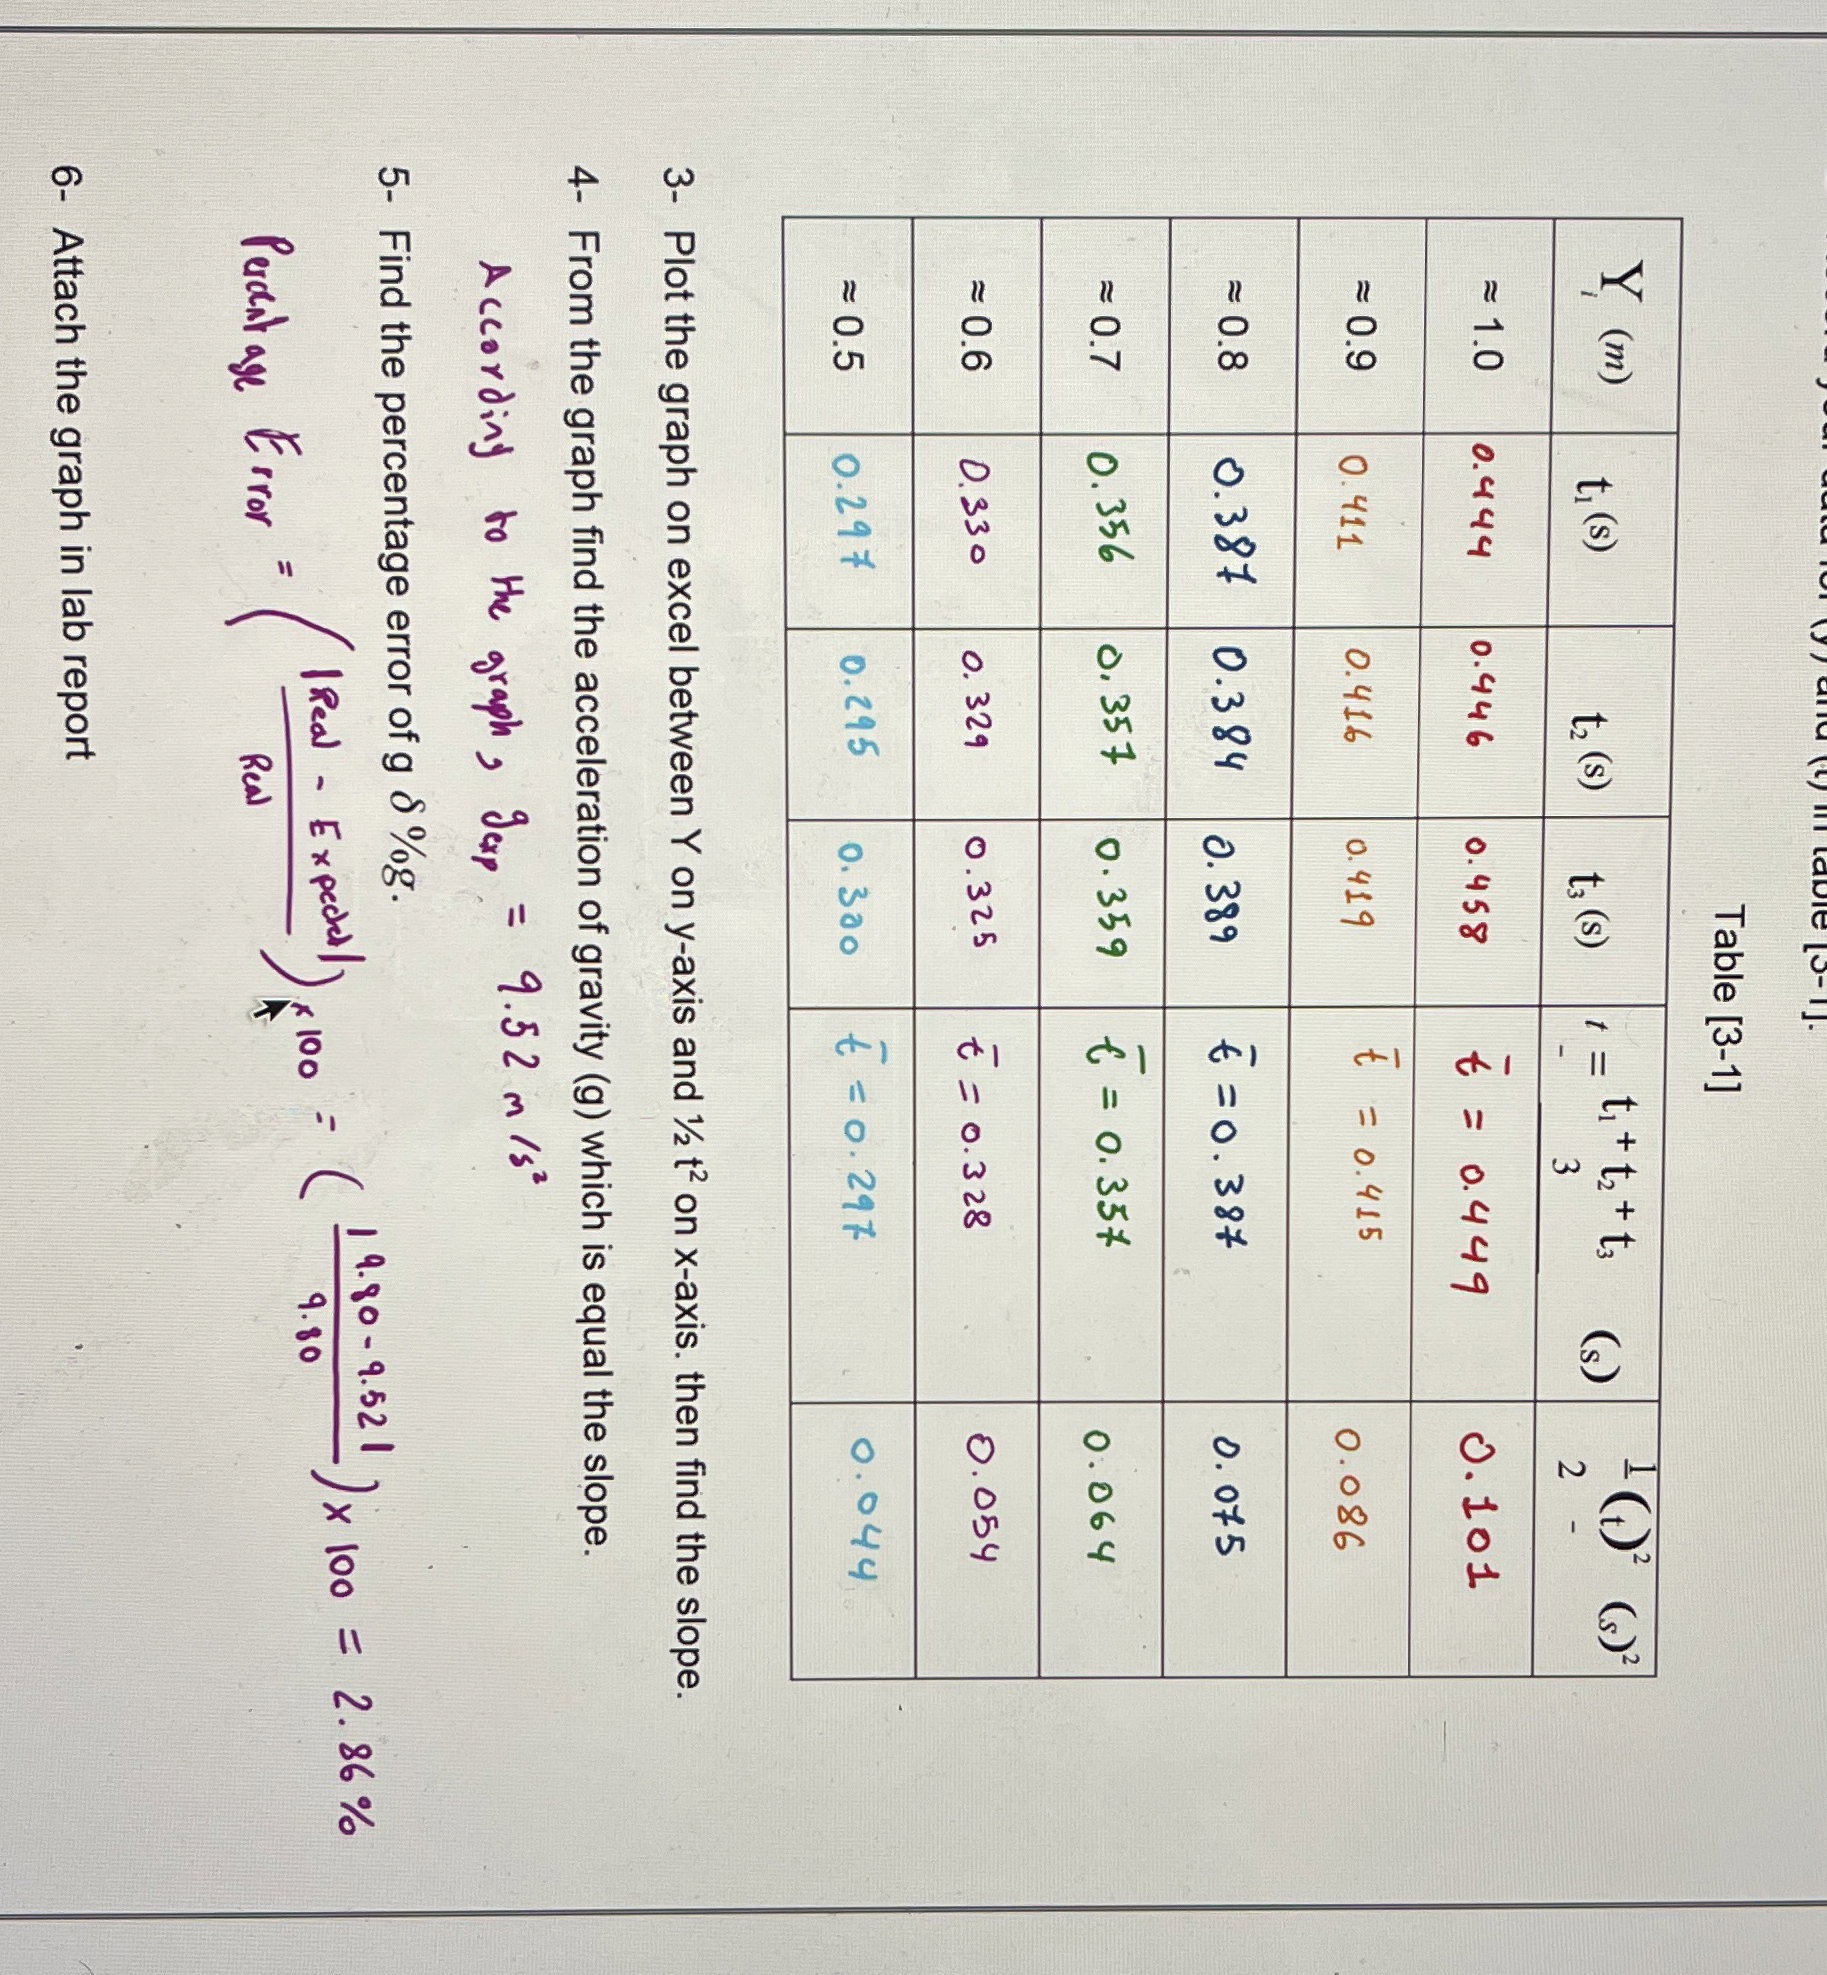 Table [3-1]
Yᵢ (m) t₁(s) t₂(s) t₃(s) t = t₁ + t₂ + t₃ / 3 (s) 1/2 (t)² (s)²
≈ 1.0 0.444 0.446 0.458 t̄ = 0.449 0.101
≈ 0.9 0.411 0.416 0.419 t̄ = 0.415 0.086
≈ 0.8 0.387 0.384 0.389 t̄ = 0.387 0.075
≈ 0.7 0.356 0.357 0.359 t̄ = 0.357 0.064
≈ 0.6 0.330 0.329 0.325 t̄ = 0.328 0.054
≈ 0.5 0.297 0.295 0.300 t̄ = 0.297 0.044
3- Plot the graph on excel between Y on y-axis and ½ t² on x-axis. then find the slope.
4- From the graph find the acceleration of gravity (g) which is equal the slope.
According to the graph, gexp = 9.52 m/s²
5- Find the percentage error of g δ%g.
Percentage Error = (|Real - Expected| / Real) × 100 = (|9.80 - 9.52| / 9.80) × 100 = 2.86%
6- Attach the graph in lab report